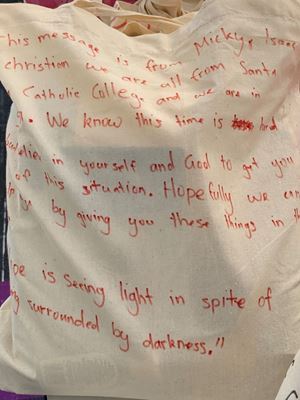 his message is from Micky, Isaac
christian we are all from Santa
Catholic College and we are in
9. We know this time is hard
believe in yourself and God to get you
of this situation. Hopefully we can
you by giving you these things in th
ope is seeing light in spite of
surrounded by darkness."